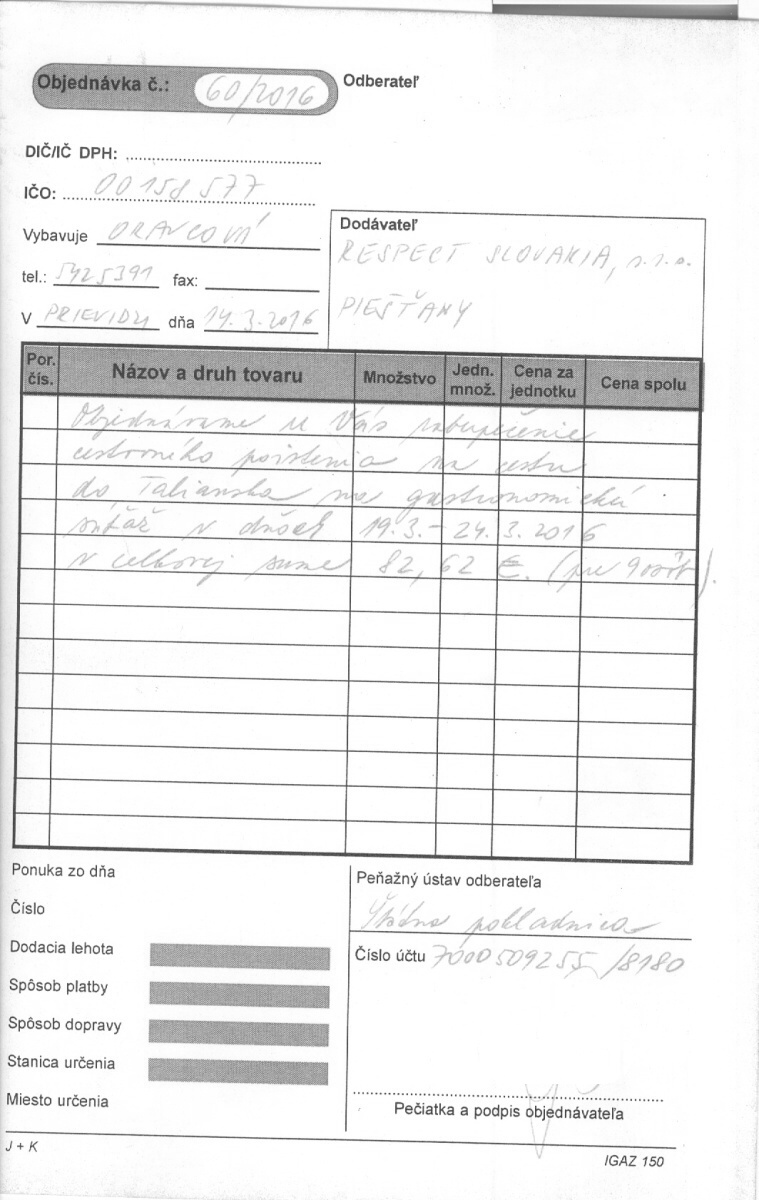 Objednávka č.: 60/2016
Odberateľ
DIČ/IČ DPH:
IČO: 00158577
Vybavuje ORAVCOVÁ
tel.: 5425391 fax:
V PRIEVIDZI dňa 14.3.2016
Dodávateľ
RESPECT SLOVAKIA, s.r.o.
PIEŠŤANY
Por. čís. Názov a druh tovaru Množstvo Jedn. množ. Cena za jednotku Cena spolu
Objednávame u Vás zabezpečenie
cestovného poistenia na cestu
do Talianska na gastronomickú
súťaž v dňoch 19.3. - 24.3.2016
v celkovej sume 82,62 €. (pre 9 osôb).
Ponuka zo dňa
Číslo
Dodacia lehota
Spôsob platby
Spôsob dopravy
Stanica určenia
Miesto určenia
Peňažný ústav odberateľa
Štátna pokladnica
Číslo účtu 7000509255/8180
Pečiatka a podpis objednávateľa
J + K
IGAZ 150